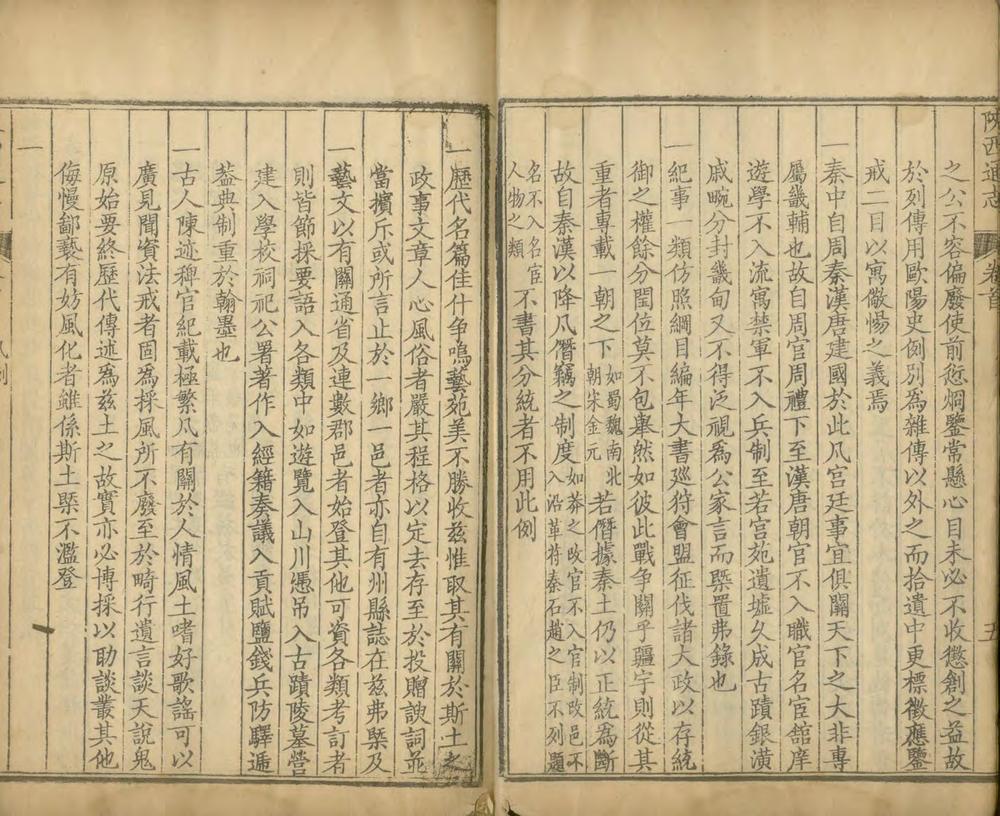 陝西通志
卷首
五
之公不容偏廢使前愆烱鑒常懸心目未必不收懲創之益故
於列傳用歐陽史例別為雜傳以外之而拾遺中更標徵應鑒
戒二目以寓儆惕之義焉
一秦中自周秦漢唐建國於此凡宫廷事宜俱關天下之大非專
屬畿輔也故自周官周禮下至漢唐朝官不入職官名宦舘庠
遊學不入流寓禁軍不入兵制至若宫苑遺墟久成古蹟銀潢
戚畹分封畿甸又不得泛視爲公家言而槩置弗錄也
紀事一類仿照綱目編年大書廵狩會盟征伐諸大政以存統
御之權餘分閏位莫不包舉然如彼此戰争關乎疆宇則從其
重者專載一朝之下如蜀魏南北朝宋金元若僭據秦土仍以正統為斷
故自秦漢以降凡僭竊之制度如莽之改官不入官制改邑不入沿革苻秦石趙之臣不列題
名不入名宦人物之類不書其分統者不用此例
一歷代名篇佳什争鳴藝苑美不勝收兹惟取其有關於斯土之
政事文章人心風俗者嚴其程格以定去存至於投贈諛詞並
當擯斥或所言止於一鄉一邑者亦自有州縣誌在兹弗槩及
一藝文以有關通省及連數郡邑者始登其他可資各類考訂者
則皆節採要語入各類中如遊覽入山川憑吊入古蹟陵墓營
建入學校祠祀公署著作入經籍奏議入貢賦鹽錢兵防驛遞
葢典制重於翰墨也
一古人陳迹稗官紀載極繁凡有關於人情風土嗜好歌謠可以
廣見聞資法戒者固為採風所不廢至於畸行遺言談天說鬼
原始要終歷代傳述為兹土之故實亦必博採以助談叢其他
侮慢鄙褻有妨風化者雖係斯土槩不濫登
一